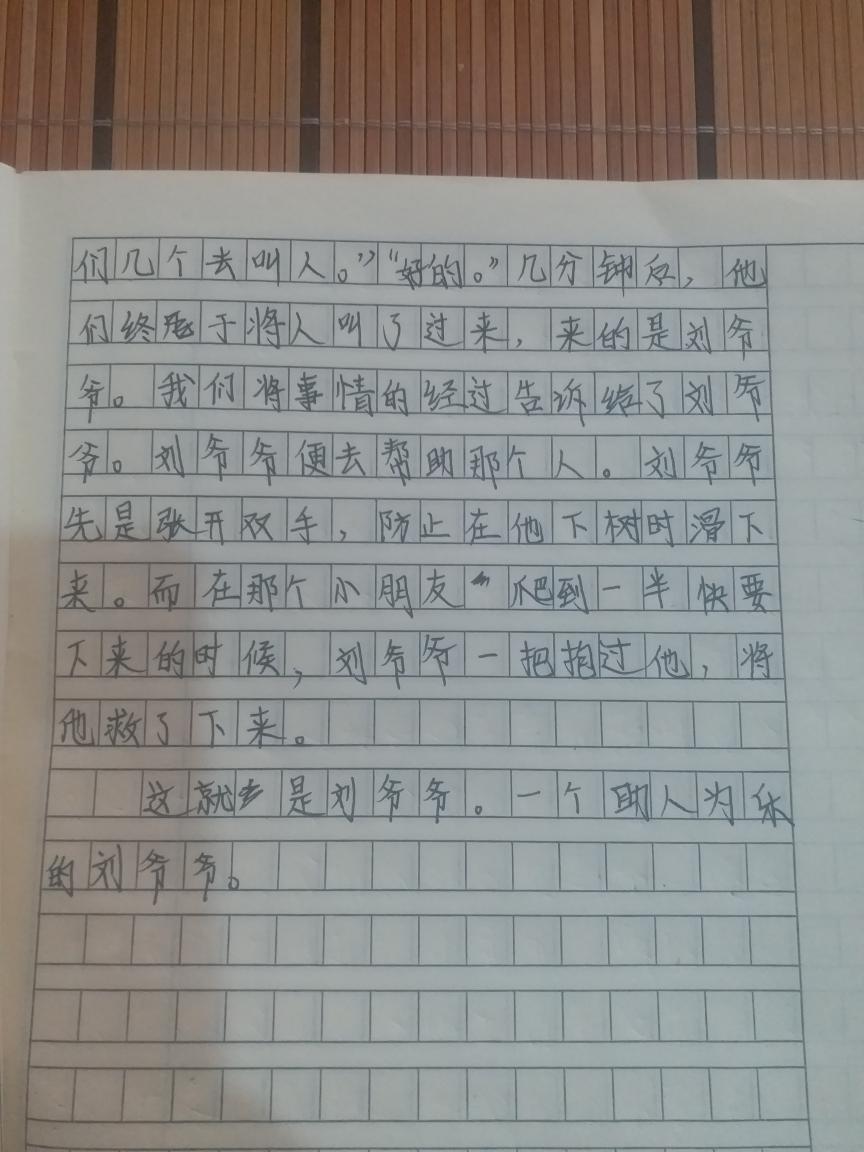 们几个去叫人。”“好的。”几分钟后，他
们终于将人叫了过来，来的是刘爷
爷。我们将事情的经过告诉给了刘爷
爷。刘爷爷便去帮助那个人。刘爷爷
先是张开双手，防止在他下树时滑下
来。而在那个小朋友爬到一半快要
下来的时候，刘爷爷一把抱过他，将
他救了下来。
这就是刘爷爷。一个助人为乐
的刘爷爷。